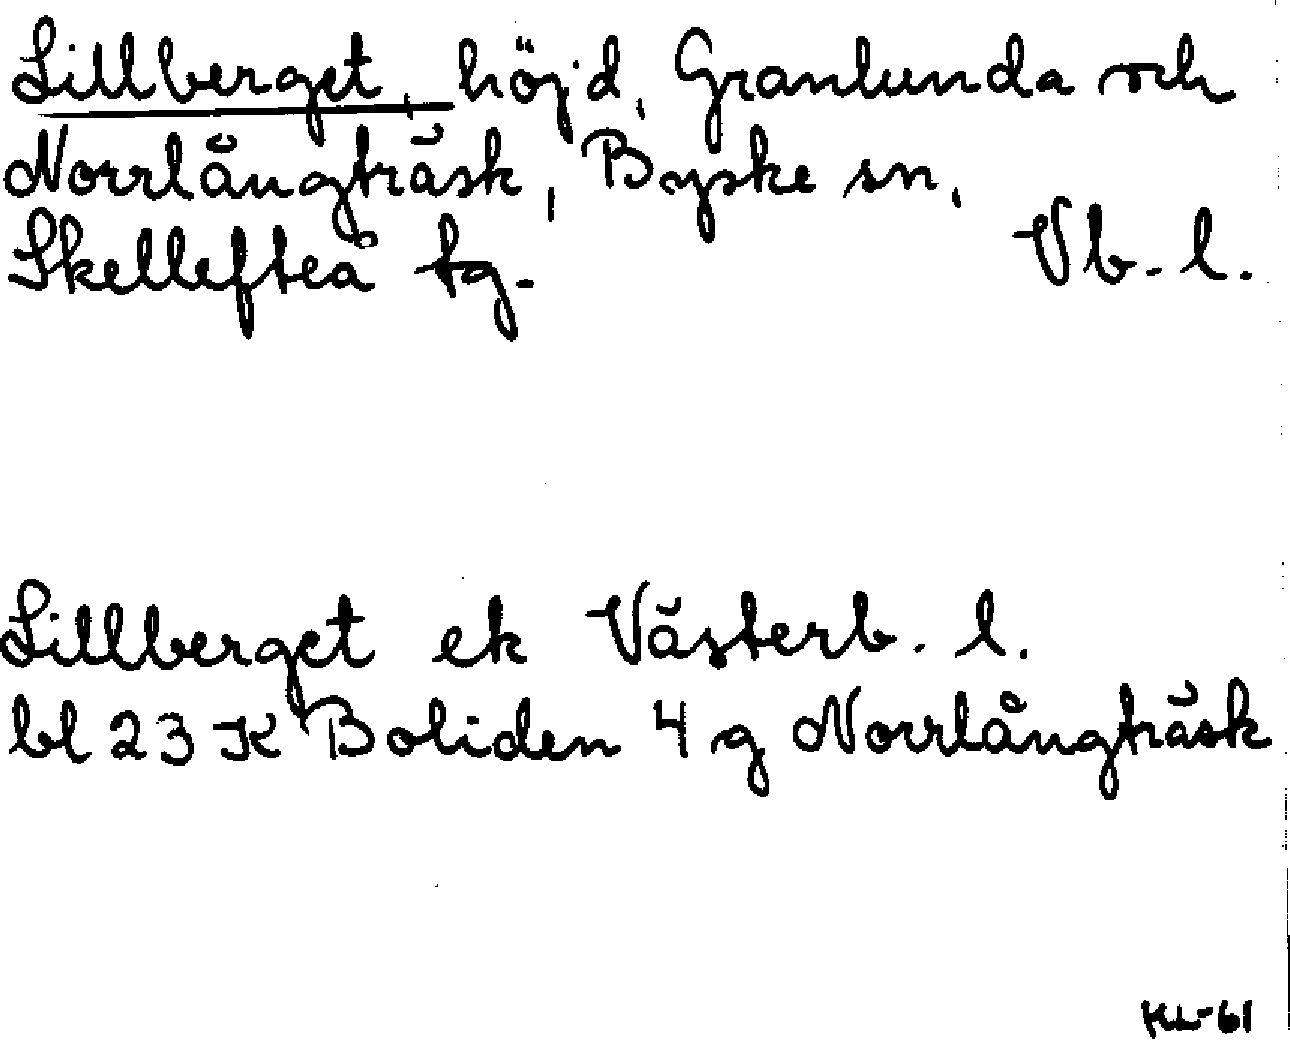 Lillberget, höjd, Granlunda och
Norrlångträsk, Byske sn,
Skellefteå tg. Vb. l.
Lillberget ek Västerb. l.
bl 23 K Boliden 4 g Norrlångträsk
KL-61